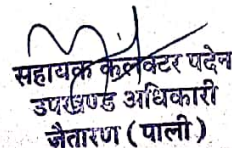 सहायक कलेक्टर पदेन
उपखण्ड अधिकारी
जैतारण (पाली)